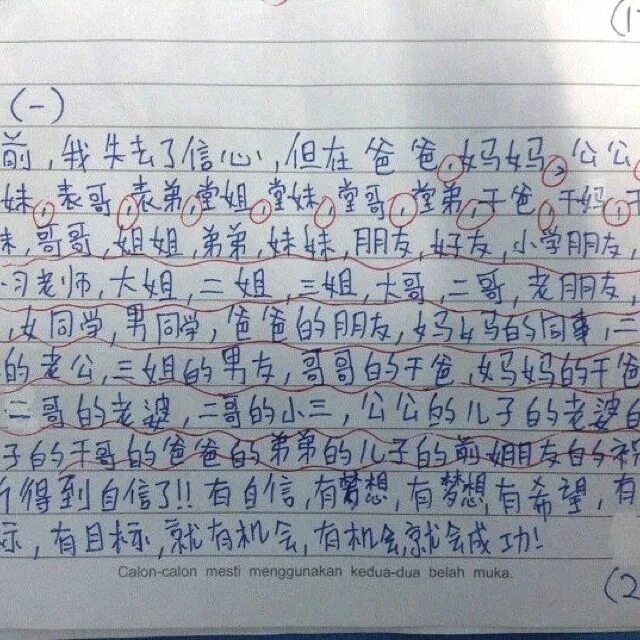 (一)
前，我失去了信心，但在爸爸，妈妈，公公
妹，表哥，表弟，堂姐，堂妹，堂哥，堂弟，干爸，干妈，干
妹，哥哥，姐姐，弟弟，妹妹，朋友，好友，小学朋友，
习老师，大姐，二姐，三姐，大哥，二哥，老朋友，
，女同学，男同学，爸爸的朋友，妈妈的同事，三
的老公，三姐的男友，哥哥的干爸，妈妈的干爸
二哥的老婆，二哥的小三，公公的儿子的老婆的
子的干哥的爸爸的弟弟的儿子的前姐朋友的
得到自信了!! 有自信，有梦想，有梦想，有希望，有
标，有目标，就有机会，有机会，就会成功!
Calon-calon mesti menggunakan kedua-dua belah muka.
(2